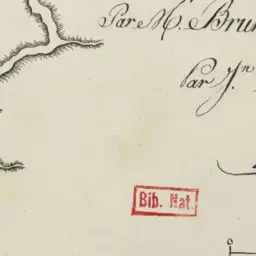 Par Mr. Brun
par Jn
Bib. Nat.
0